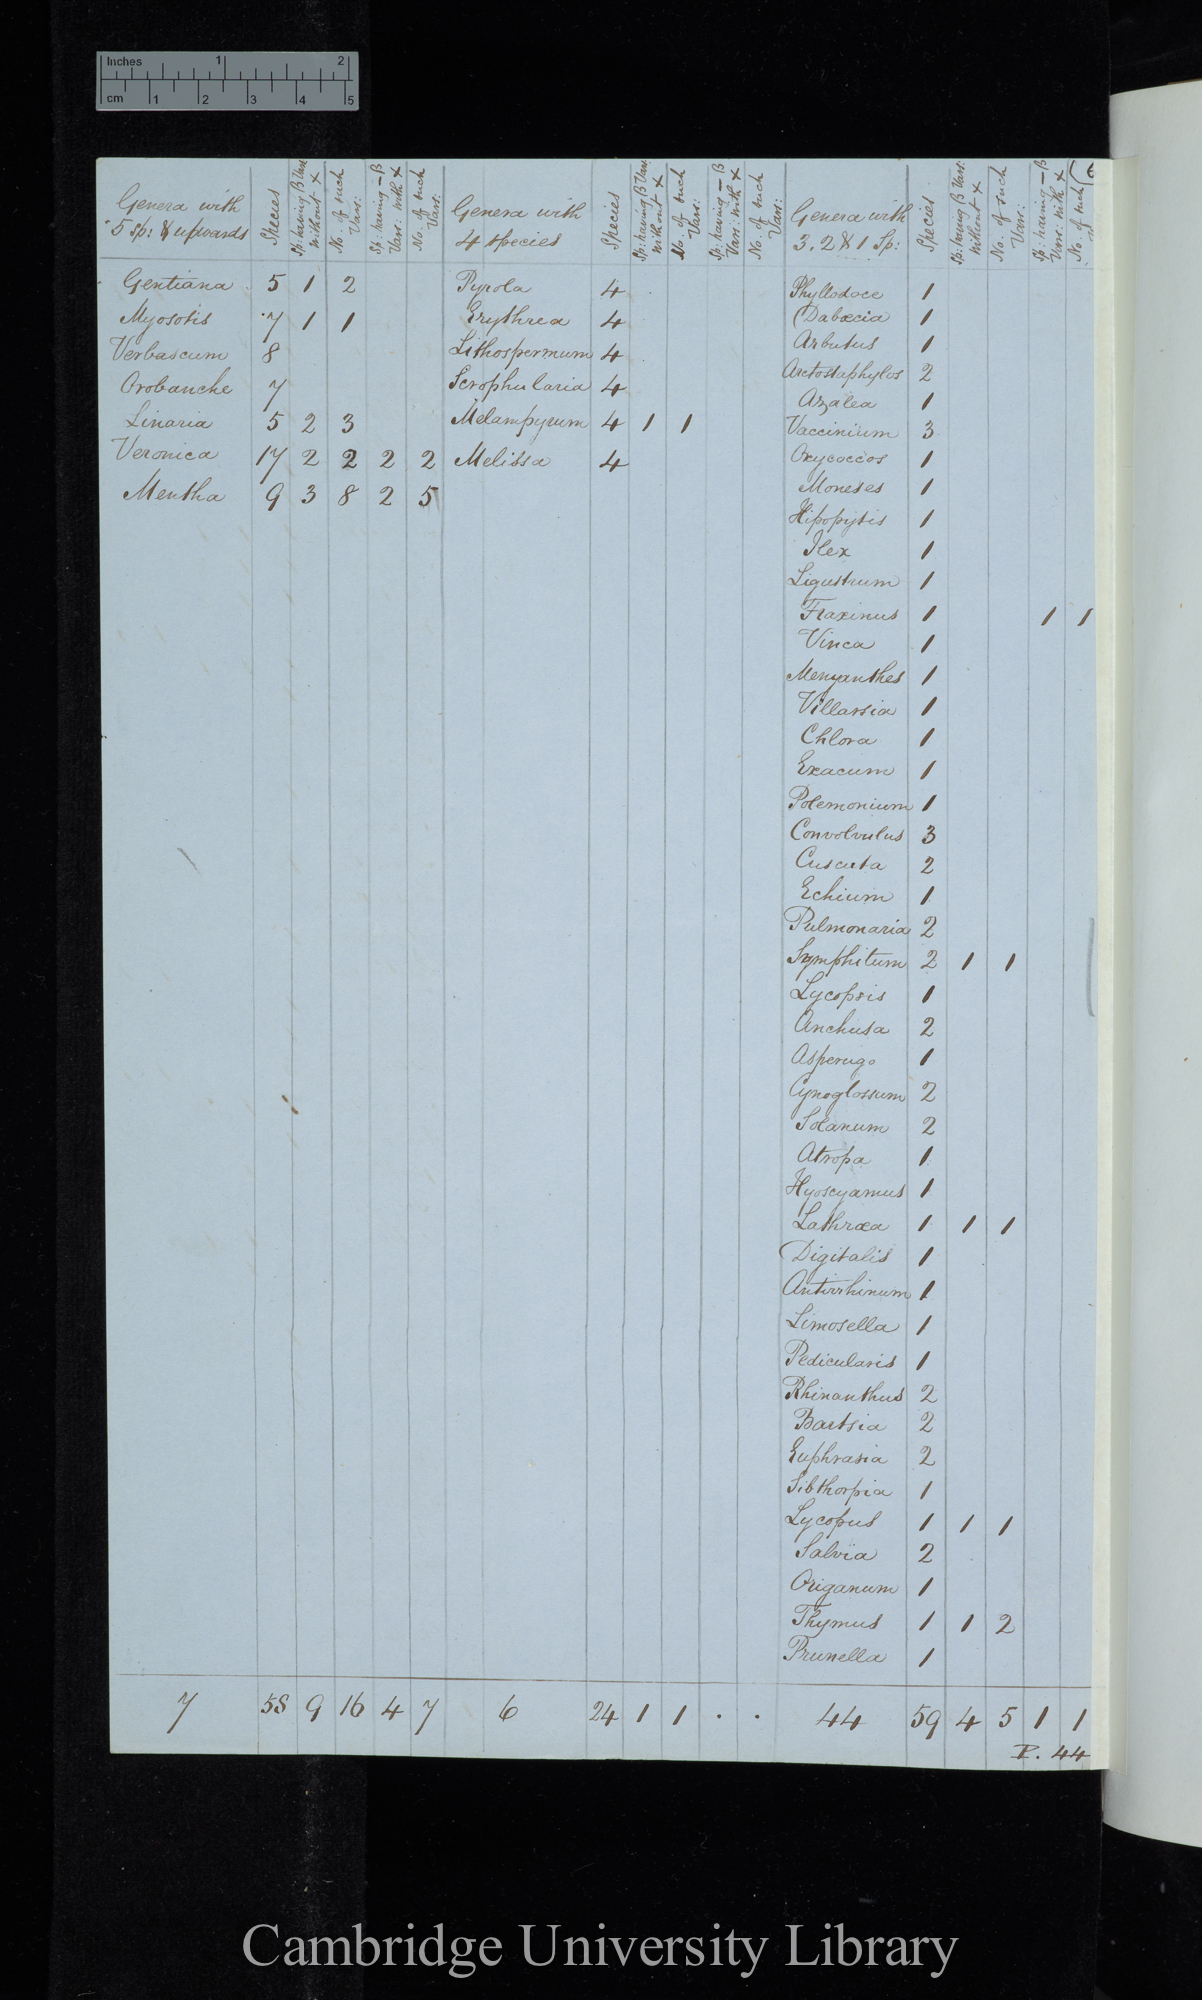 Inches 1 2
cm 1 2 3 4 5
Genera with 5 sp: & upwards | Species | Sp: having β Vars: without × | No. of such Vars: | Sp: having — β Vars: with × | No. of such Vars: | Genera with 4 species | Species | Sp: having β Vars: without × | No. of such Vars: | Sp: having — β Vars: with × | No. of such Vars: | Genera with 3. 2 & 1 Sp: | Species | Sp: having β Vars: without × | No. of such Vars: | Sp: having — β Vars: with × | No. of such
Gentiana 5 1 2
Myosotis 7 1 1
Verbascum 8
Orobanche 7
Linaria 5 2 3
Veronica 17 2 2 2 2
Mentha 9 3 8 2 5
7 58 9 16 4 7
Pyrola 4
Erythrea 4
Lithospermum 4
Scrophularia 4
Melampyrum 4 1 1
Melissa 4
6 24 1 1 . .
Phyllodoce 1
Dabœcia 1
Arbutus 1
Arctostaphylos 2
Azalea 1
Vaccinium 3
Oxycoccos 1
Moneses 1
Hipopytis 1
Ilex 1
Ligustrum 1
Fraxinus 1 1 1
Vinca 1
Menyanthes 1
Villarsia 1
Chlora 1
Exacum 1
Polemonium 1
Convolvulus 3
Cuscuta 2
Echium 1
Pulmonaria 2
Symphitum 2 1 1
Lycopsis 1
Anchusa 2
Asperugo 1
Cynoglossum 2
Solanum 2
Atropa 1
Hyoscyamus 1
Lathræa 1 1 1
Digitalis 1
Antirrhinum 1
Limosella 1
Pedicularis 1
Rhinanthus 2
Bartsia 2
Euphrasia 2
Sibthorpia 1
Lycopus 1 1 1
Salvia 2
Origanum 1
Thymus 1 1 2
Prunella 1
44 59 4 5 1 1
P. 44
Cambridge University Library